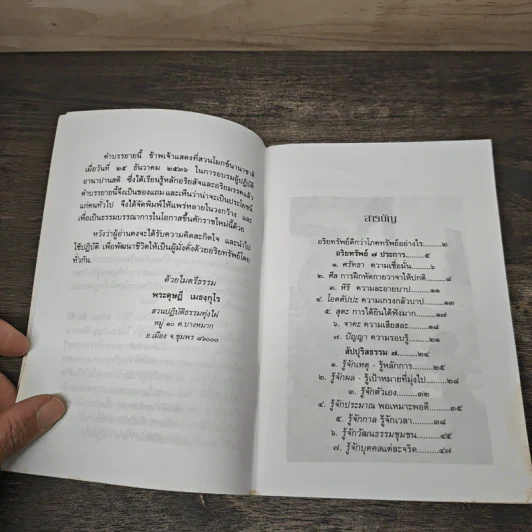 คำบรรยายนี้ ข้าพเจ้าแสดงที่สวนโมกข์นานาชาติ
เมื่อวันที่ ๒๕ ธันวาคม ๒๕๓๖ ในการอบรมผู้ปฏิบัติ
อานาปานสติ ซึ่งได้เรียนรู้หลักอริยสัจและอริยมรรคแล้ว
คำบรรยายนี้จึงเป็นของแถม และเห็นว่าน่าจะเป็นประโยชน์
แก่คนทั่วไป จึงได้จัดพิมพ์ให้แพร่หลายในวงกว้าง และ
เพื่อเป็นธรรมบรรณาการในโอกาสขึ้นศักราชใหม่นี้ด้วย
หวังว่าผู้อ่านคงจะได้รับความคิดสะกิดใจ และนำไป
ใช้ปฏิบัติ เพื่อพัฒนาชีวิตให้เป็นผู้มั่งคั่งด้วยอริยทรัพย์โดย
ทั่วกัน
ด้วยไมตรีธรรม
พระดุษฎี เมธงฺกุโร
สวนปฏิบัติธรรมทุ่งไผ่
หมู่ ๑๐ ต.บางหมาก
อ.เมือง จ.ชุมพร ๘๖๐๐๐
สารบัญ
อริยทรัพย์ดีกว่าโภคทรัพย์อย่างไร.......๒
อริยทรัพย์ ๗ ประการ.......๕
๑. ศรัทธา ความเชื่อมั่น.......๖
๒. ศีล การฝึกหัดกายวาจาให้ปกติ.......๘
๓. หิริ ความละอายบาป.......๑๑
๔. โอตตัปปะ ความเกรงกลัวบาป.......๑๓
๕. สุตะ การได้ยินได้ฟังมาก.......๑๗
๖. จาคะ ความเสียสละ.......๑๘
๗. ปัญญา ความรอบรู้.......๒๑
สัปปุริสธรรม ๗.......๒๔
๑. รู้จักเหตุ - รู้หลักการ.......๒๕
๒. รู้จักผล - รู้เป้าหมายที่มุ่งไป.......๒๘
๓. รู้จักตัวเอง.......๓๒
๔. รู้จักประมาณ พอเหมาะพอดี.......๓๕
๕. รู้จักกาล รู้จักเวลา.......๓๘
๖. รู้จักวัฒนธรรมชุมชน.......๔๕
๗. รู้จักบุคคลแต่ละจริต.......๔๗